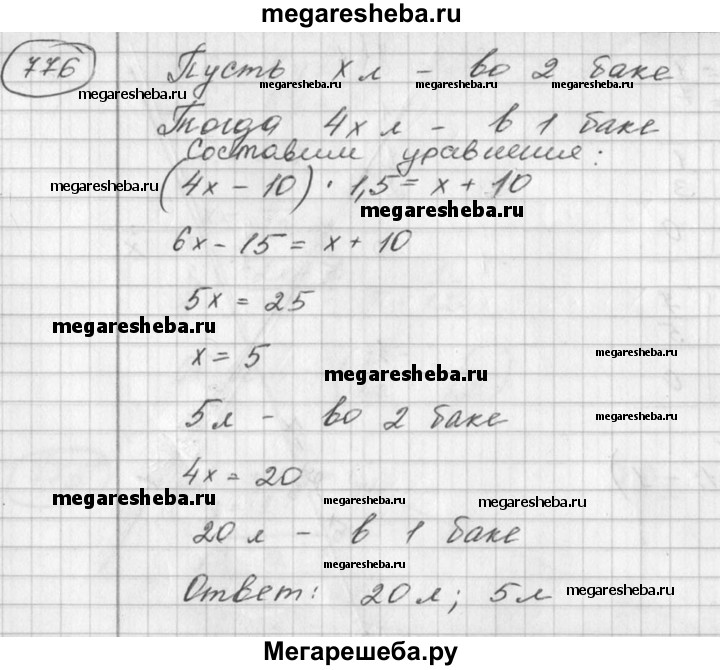 megaresheba.ru
776
Пусть x л - во 2 баке
megaresheba.ru megaresheba.ru megaresheba.ru
Тогда 4x л - в 1 баке
Составим уравнение:
megaresheba.ru
(4x - 10) · 1,5 = x + 10
megaresheba.ru
6x - 15 = x + 10
5x = 25
megaresheba.ru
x = 5
megaresheba.ru
megaresheba.ru
5л - во 2 баке
megaresheba.ru
4x = 20
megaresheba.ru megaresheba.ru megaresheba.ru
20 л - в 1 баке
megaresheba.ru
Ответ: 20л; 5л
megaresheba.ru
Мегарешеба.ру